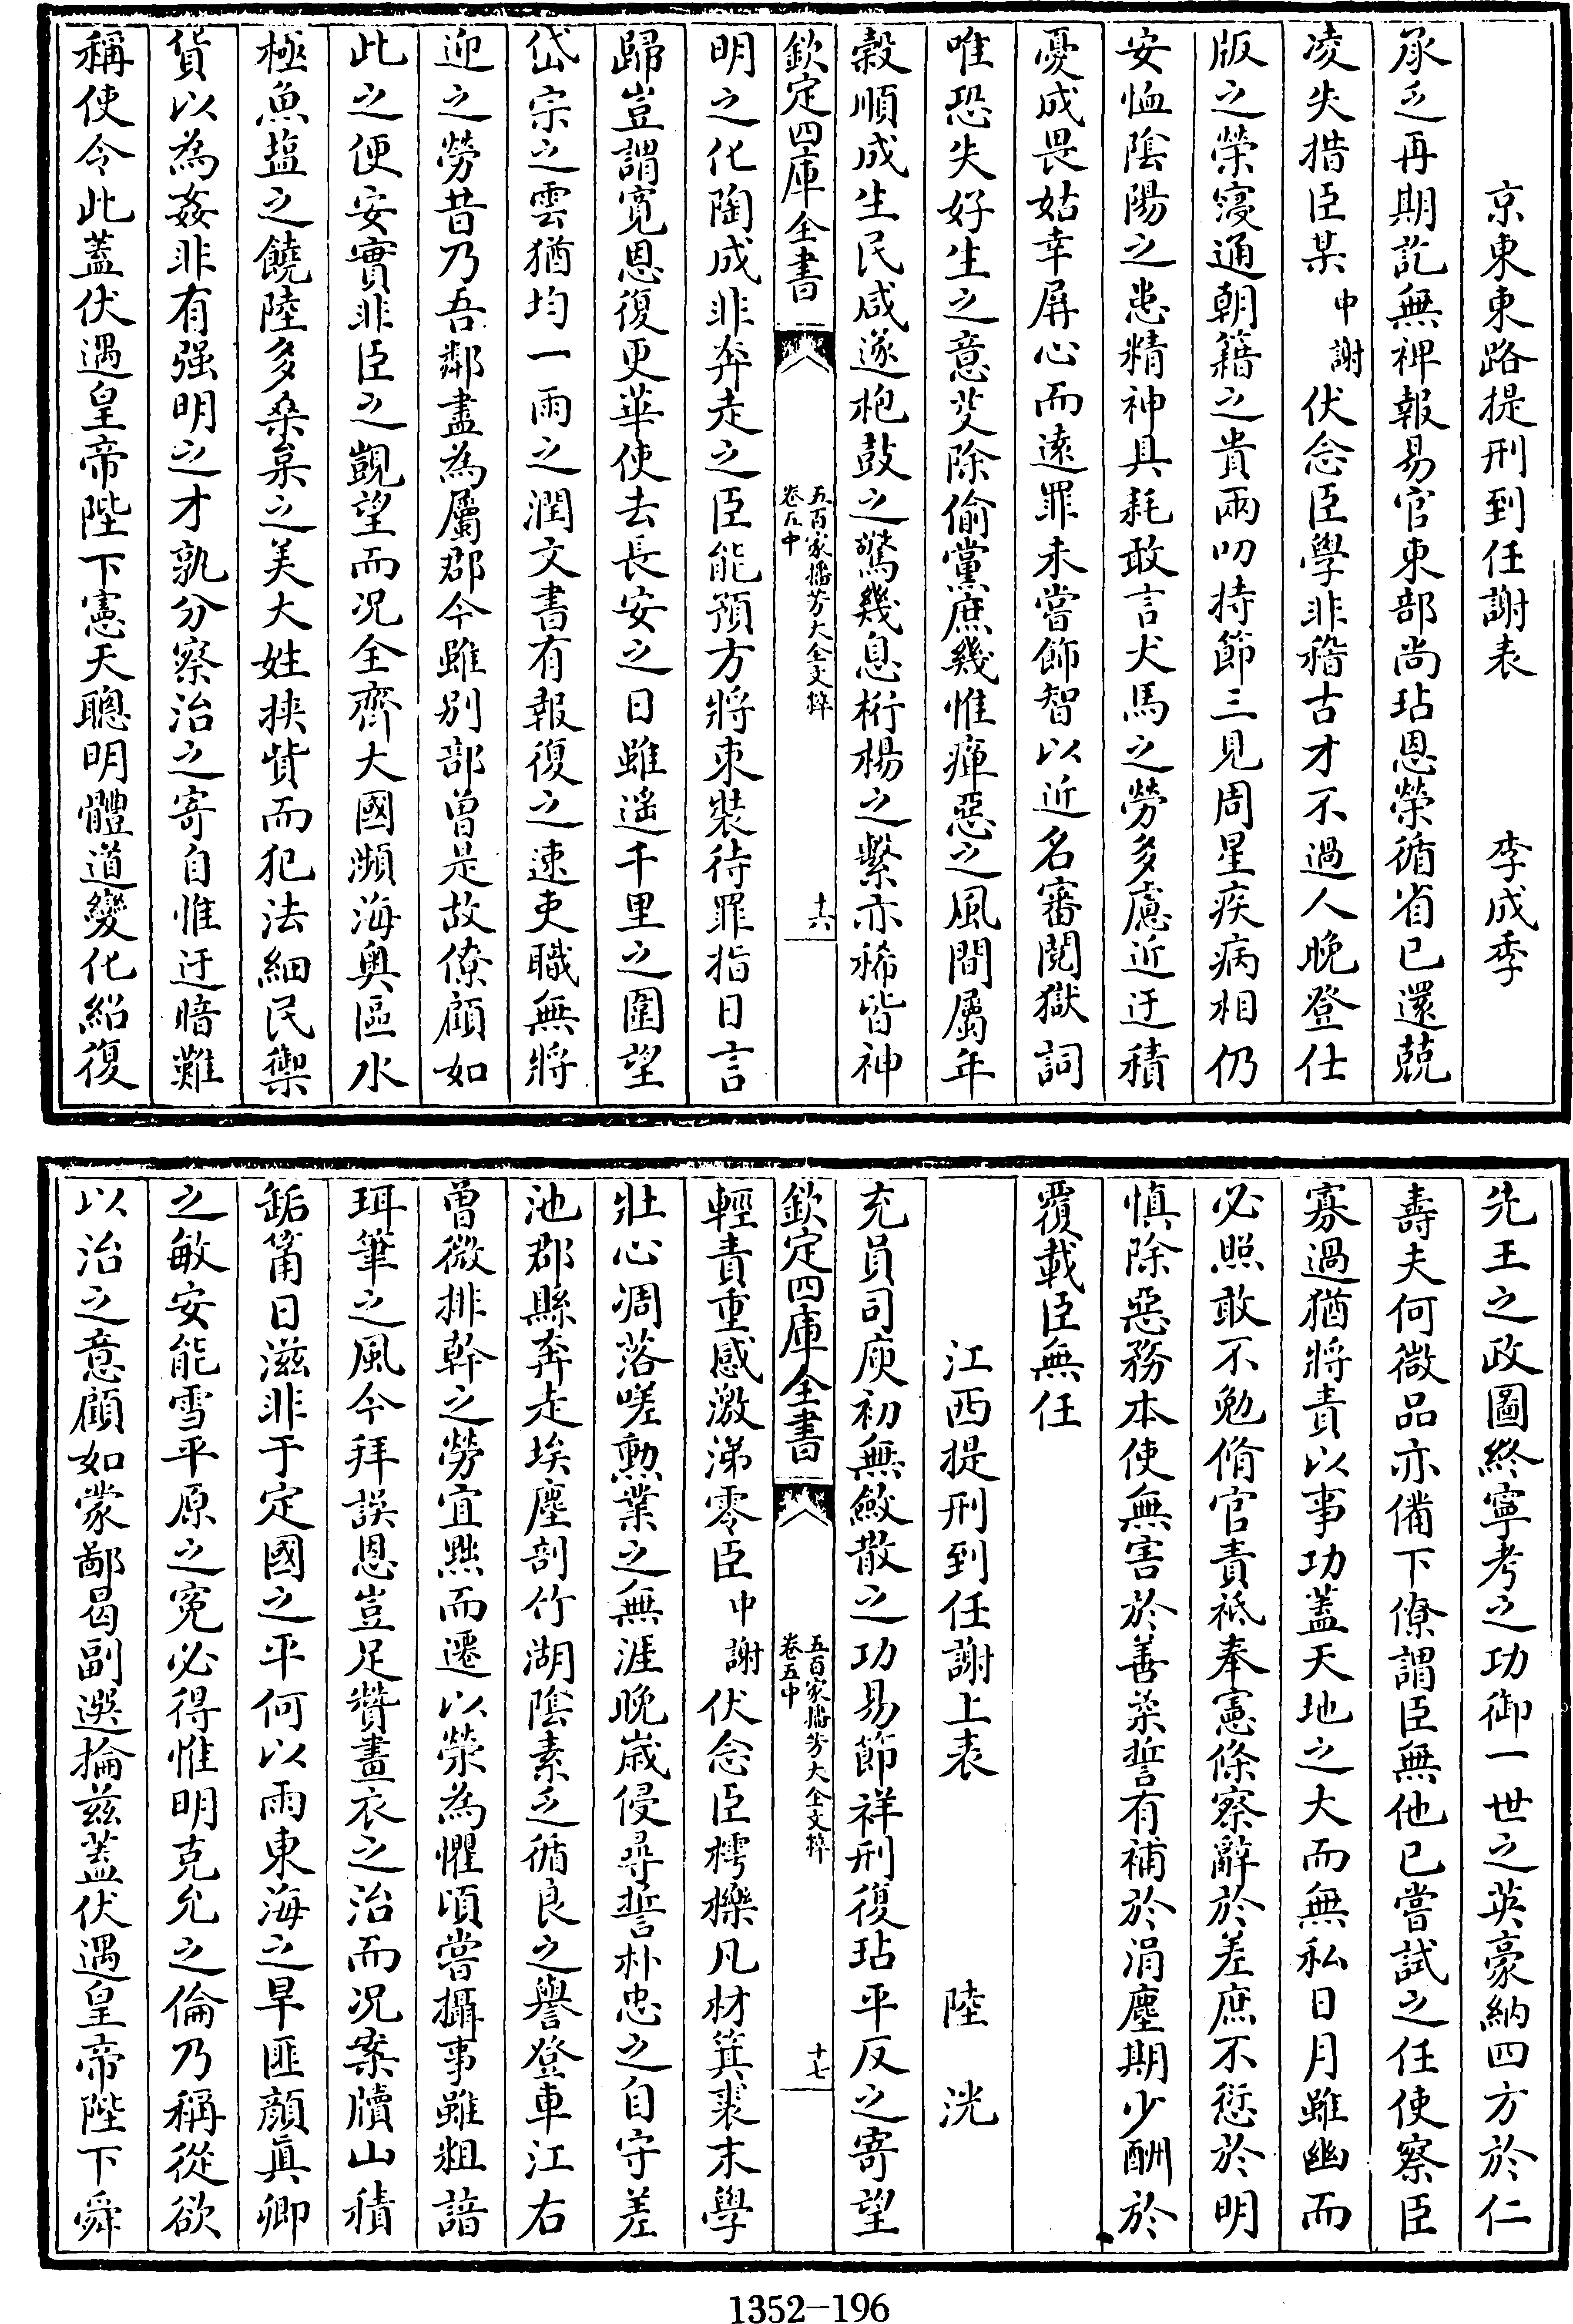 京東東路提刑到任謝表 李成季
承乏再期訖無裨報易官東部尚玷恩榮循省已還兢
凌失措臣某中謝伏念臣學非稽古才不過人晚登仕
版之榮寖通朝籍之貴兩叨持節三見周星疾病相仍
安恤陰陽之患精神具耗敢言犬馬之勞多慮近迂積
憂成畏姑幸屏心而遠罪未嘗飾智以近名審閱獄詞
唯恐失好生之意芟除偷黨庶幾惟癉惡之風間屬年
穀順成生民咸遂枹鼓之驚幾息桁楊之繫亦稀皆神
欽定四庫全書 五百家播芳大全文粹 卷五中 十六
明之化陶成非奔走之臣能預方將束裝待罪指日言
歸豈謂寬恩復更華使去長安之日雖遥千里之圍望
岱宗之雲猶均一雨之潤文書有報復之速吏職無將
迎之勞昔乃吾鄰盡為屬郡今雖別部曾是故僚顧如
此之便安實非臣之覬望而况全齊大國瀕海奥區水
極魚塩之饒陸多桑枲之美大姓挾貲而犯法細民禦
貨以為姦非有强明之才孰分察治之寄自惟迂暗難
稱使令此蓋伏遇皇帝陛下憲天聰明體道變化紹復
先王之政圖終寧考之功御一世之英豪納四方於仁
壽夫何微品亦備下僚謂臣無他已嘗試之任使察臣
寡過猶將責以事功蓋天地之大而無私日月雖幽而
必照敢不勉脩官責祗奉憲條察辭於差庶不愆於明
慎除惡務本使無害於善柔誓有補於涓塵期少酬於
覆載臣無任
江西提刑到任謝上表 陸洸
充員司庾初無斂散之功易節祥刑復玷平反之寄望
欽定四庫全書 五百家播芳大全文粹 卷五中 十七
輕責重感激涕零臣中謝伏念臣樗櫟凡材箕裘末學
壯心凋落嗟勲業之無涯晚歲侵尋誓朴忠之自守差
池郡縣奔走埃塵剖竹湖陰素乏循良之譽登車江右
曾微排斡之勞宜黜而遷以榮為懼頃嘗攝事雖粗諳
珥筆之風今拜誤恩豈足贊畫衣之治而况案牘山積
缿筩日滋非于定國之平何以雨東海之旱匪顔真卿
之敏安能雪平原之寃必得惟明克允之倫乃稱從欲
以治之意顧如蒙鄙曷副選掄兹蓋伏遇皇帝陛下舜
1352-196